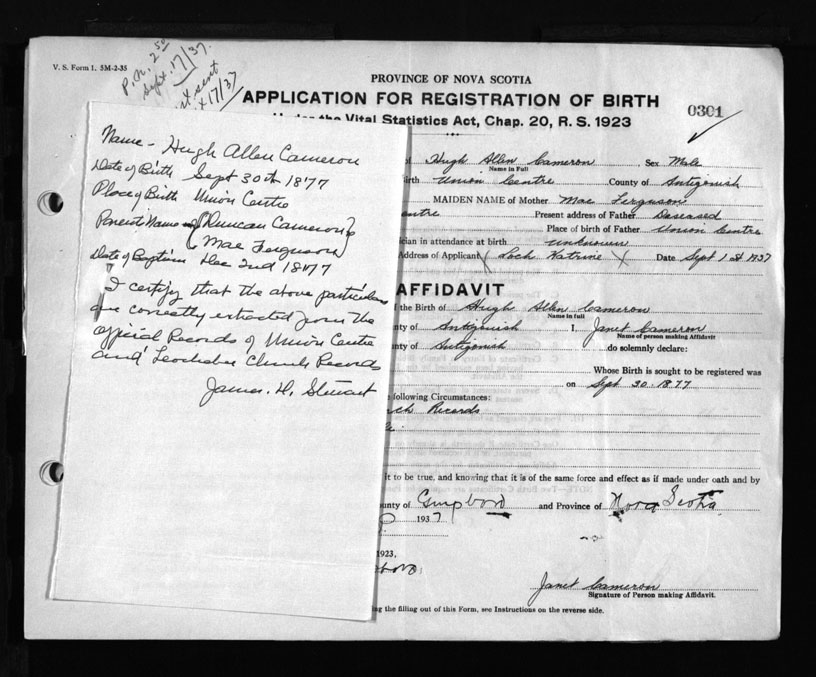 V. S. Form 1. 5M-2-35
P.N. 2 50
Sept. 17/37.
sent
17/37
PROVINCE OF NOVA SCOTIA
APPLICATION FOR REGISTRATION OF BIRTH
0301
Under the Vital Statistics Act, Chap. 20, R. S. 1923
Name - Hugh Allen Cameron
Date of Birth Sept 30th 1877
Place of Birth Union Centre
Parent Names of Duncan Cameron &
Mae Ferguson
Date of Baptism Dec 2nd 1877
I certify that the above particulars
are correctly extracted from the
official Records of Union Centre
and Lochaber Church Records
James. D. Stewart
of Hugh Allen Cameron Sex Male
Name in Full
Birth Union Centre County of Antigonish
MAIDEN NAME of Mother Mae Ferguson
entre Present address of Father Deseased
Place of birth of Father Union Centre
ician in attendance at birth unknown
Address of Applicant Loch Katrine Date Sept 1st 1937
AFFIDAVIT
the Birth of Hugh Allen Cameron
Name in full
ty of Antigonish I, Janet Cameron
Name of person making Affidavit
nty of Antigonish do solemnly declare:
Whose Birth is sought to be registered was
on Sept 30. 1877
following Circumstances:
rch Records
it to be true, and knowing that it is of the same force and effect as if made under oath and by
unty of and Province of Nova Scotia
1937
1923,
Janet Cameron
Signature of Person making Affidavit.
ng the filling out of this Form, see Instructions on the reverse side.